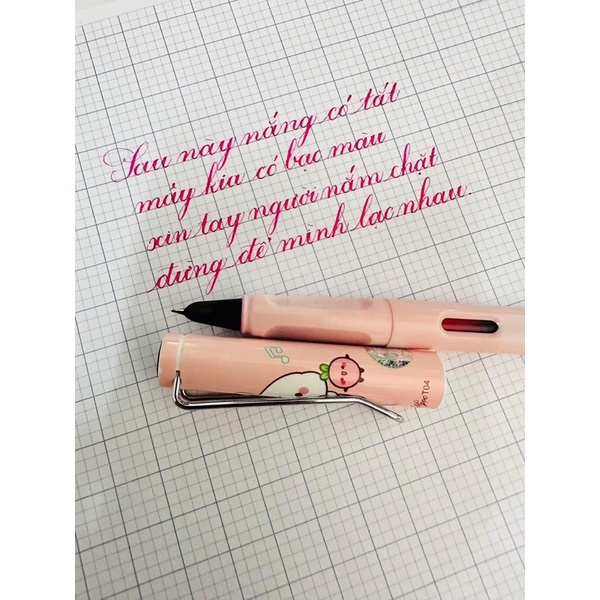 Sau này nắng có tắt
mây kia có bạc mau
xin tay người nắm chặt
đừng để mình lạc nhau.
T04